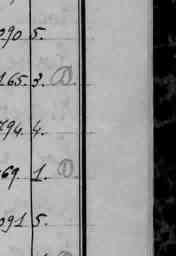 090 5.
165. 3. D.
794. 4.
69 1. D.
091 5.